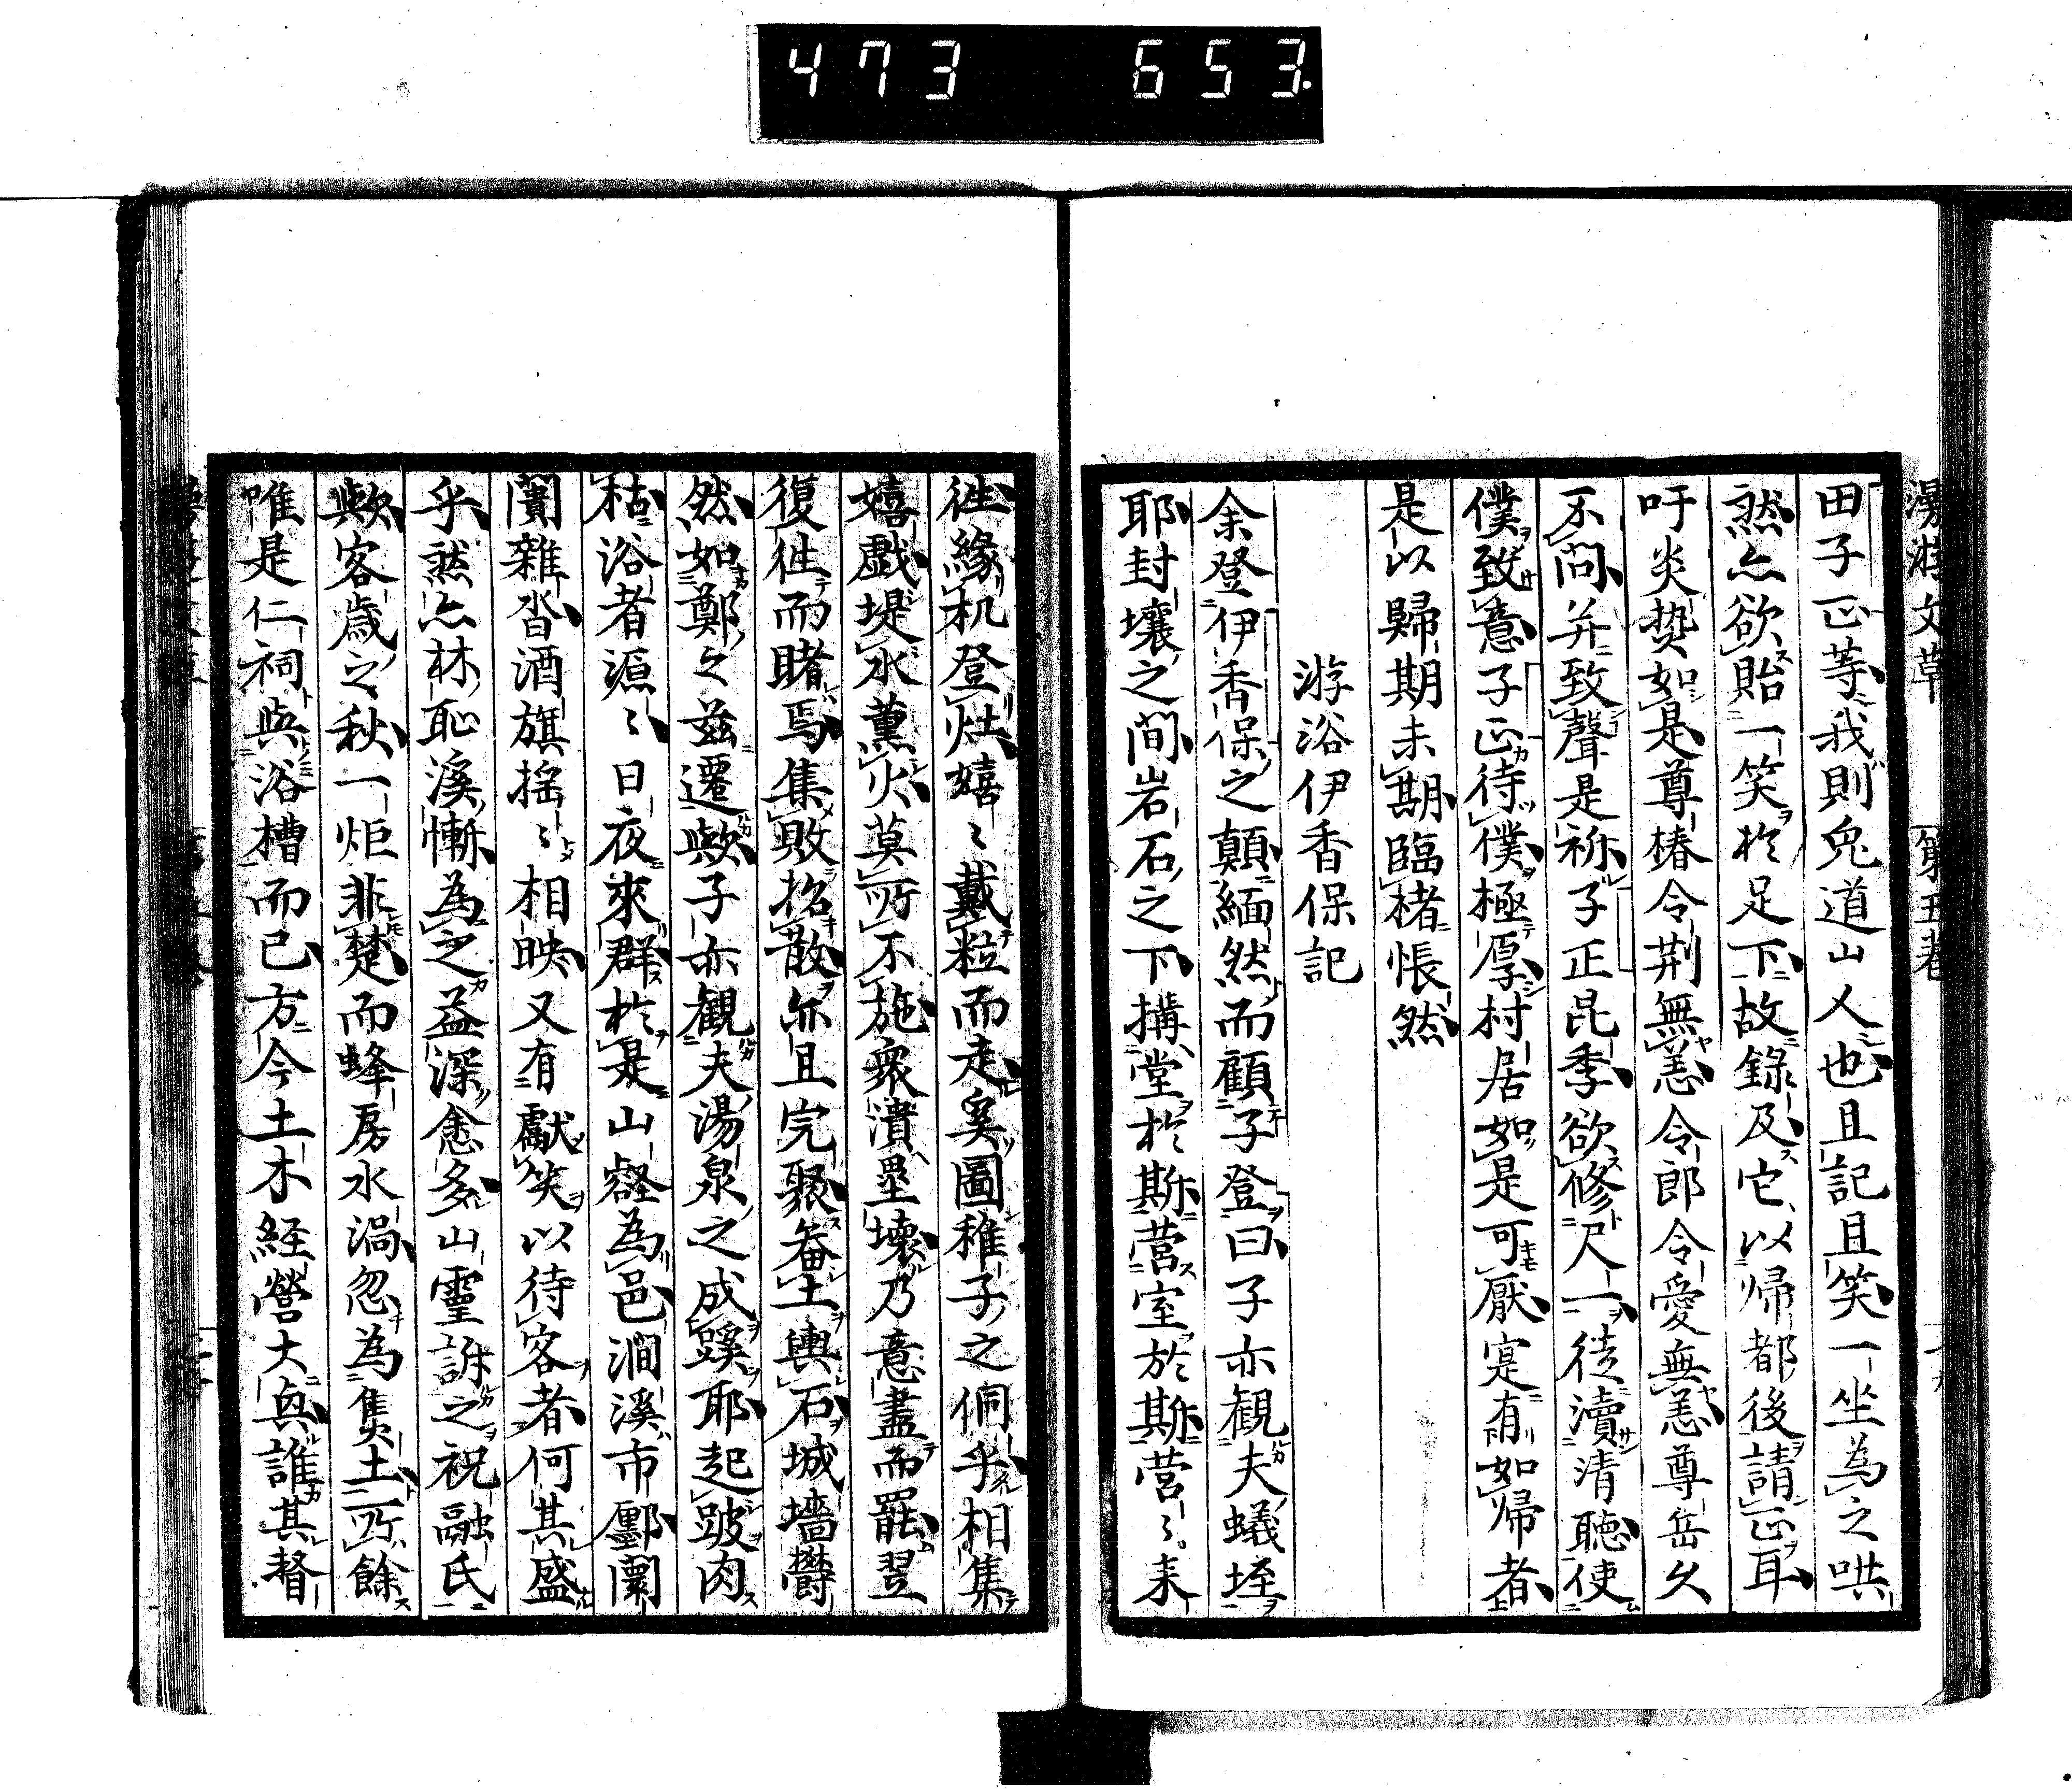 473 653.
漫游文草 第五卷
田子正等我則皃道山人也且記且笑一坐為之哄
然亦欲貽一笑於足下故錄及它以帰都後請正耳
吁炎熱如是尊椿令荆無恙令郎令愛無恙尊岳久
不問并致聲是祢子正昆季欲修尺一徒瀆清聴使
僕致意子正待僕極厚村居如是可厭寔有如帰者
是以歸期未期臨楮悵然
游浴伊香保記
余登伊香保之顛緬然而顧子登曰子亦観夫蟻垤
耶封壤之間岩石之下搆堂於斯営室於斯営〻来
徃緣机登灶嬉〻戴粒而走奚圖稚子之侗乎相集
嬉戯堤水薫火莫所不施衆潰壘壊乃意盡而罷翌
復徃而睹焉集敗招散亦且完聚畚土輿石城墻欝
然如鄭之茲遷歟子亦観夫湯泉之成蹊耶起跛肉
枯浴者源〻日夜來群於是山豁為邑澗溪市鄽闤
闠雜沓酒旗揺〻相映又有獻笑以待客者何其盛
乎然亦林恥溪慚為之益深愈多山靈訴之祝融氏
歟客歳之秋一炬非楚而蜂房水渦忽為隻土所餘
唯是仁祠與浴槽而已方今土木経営大與誰其督